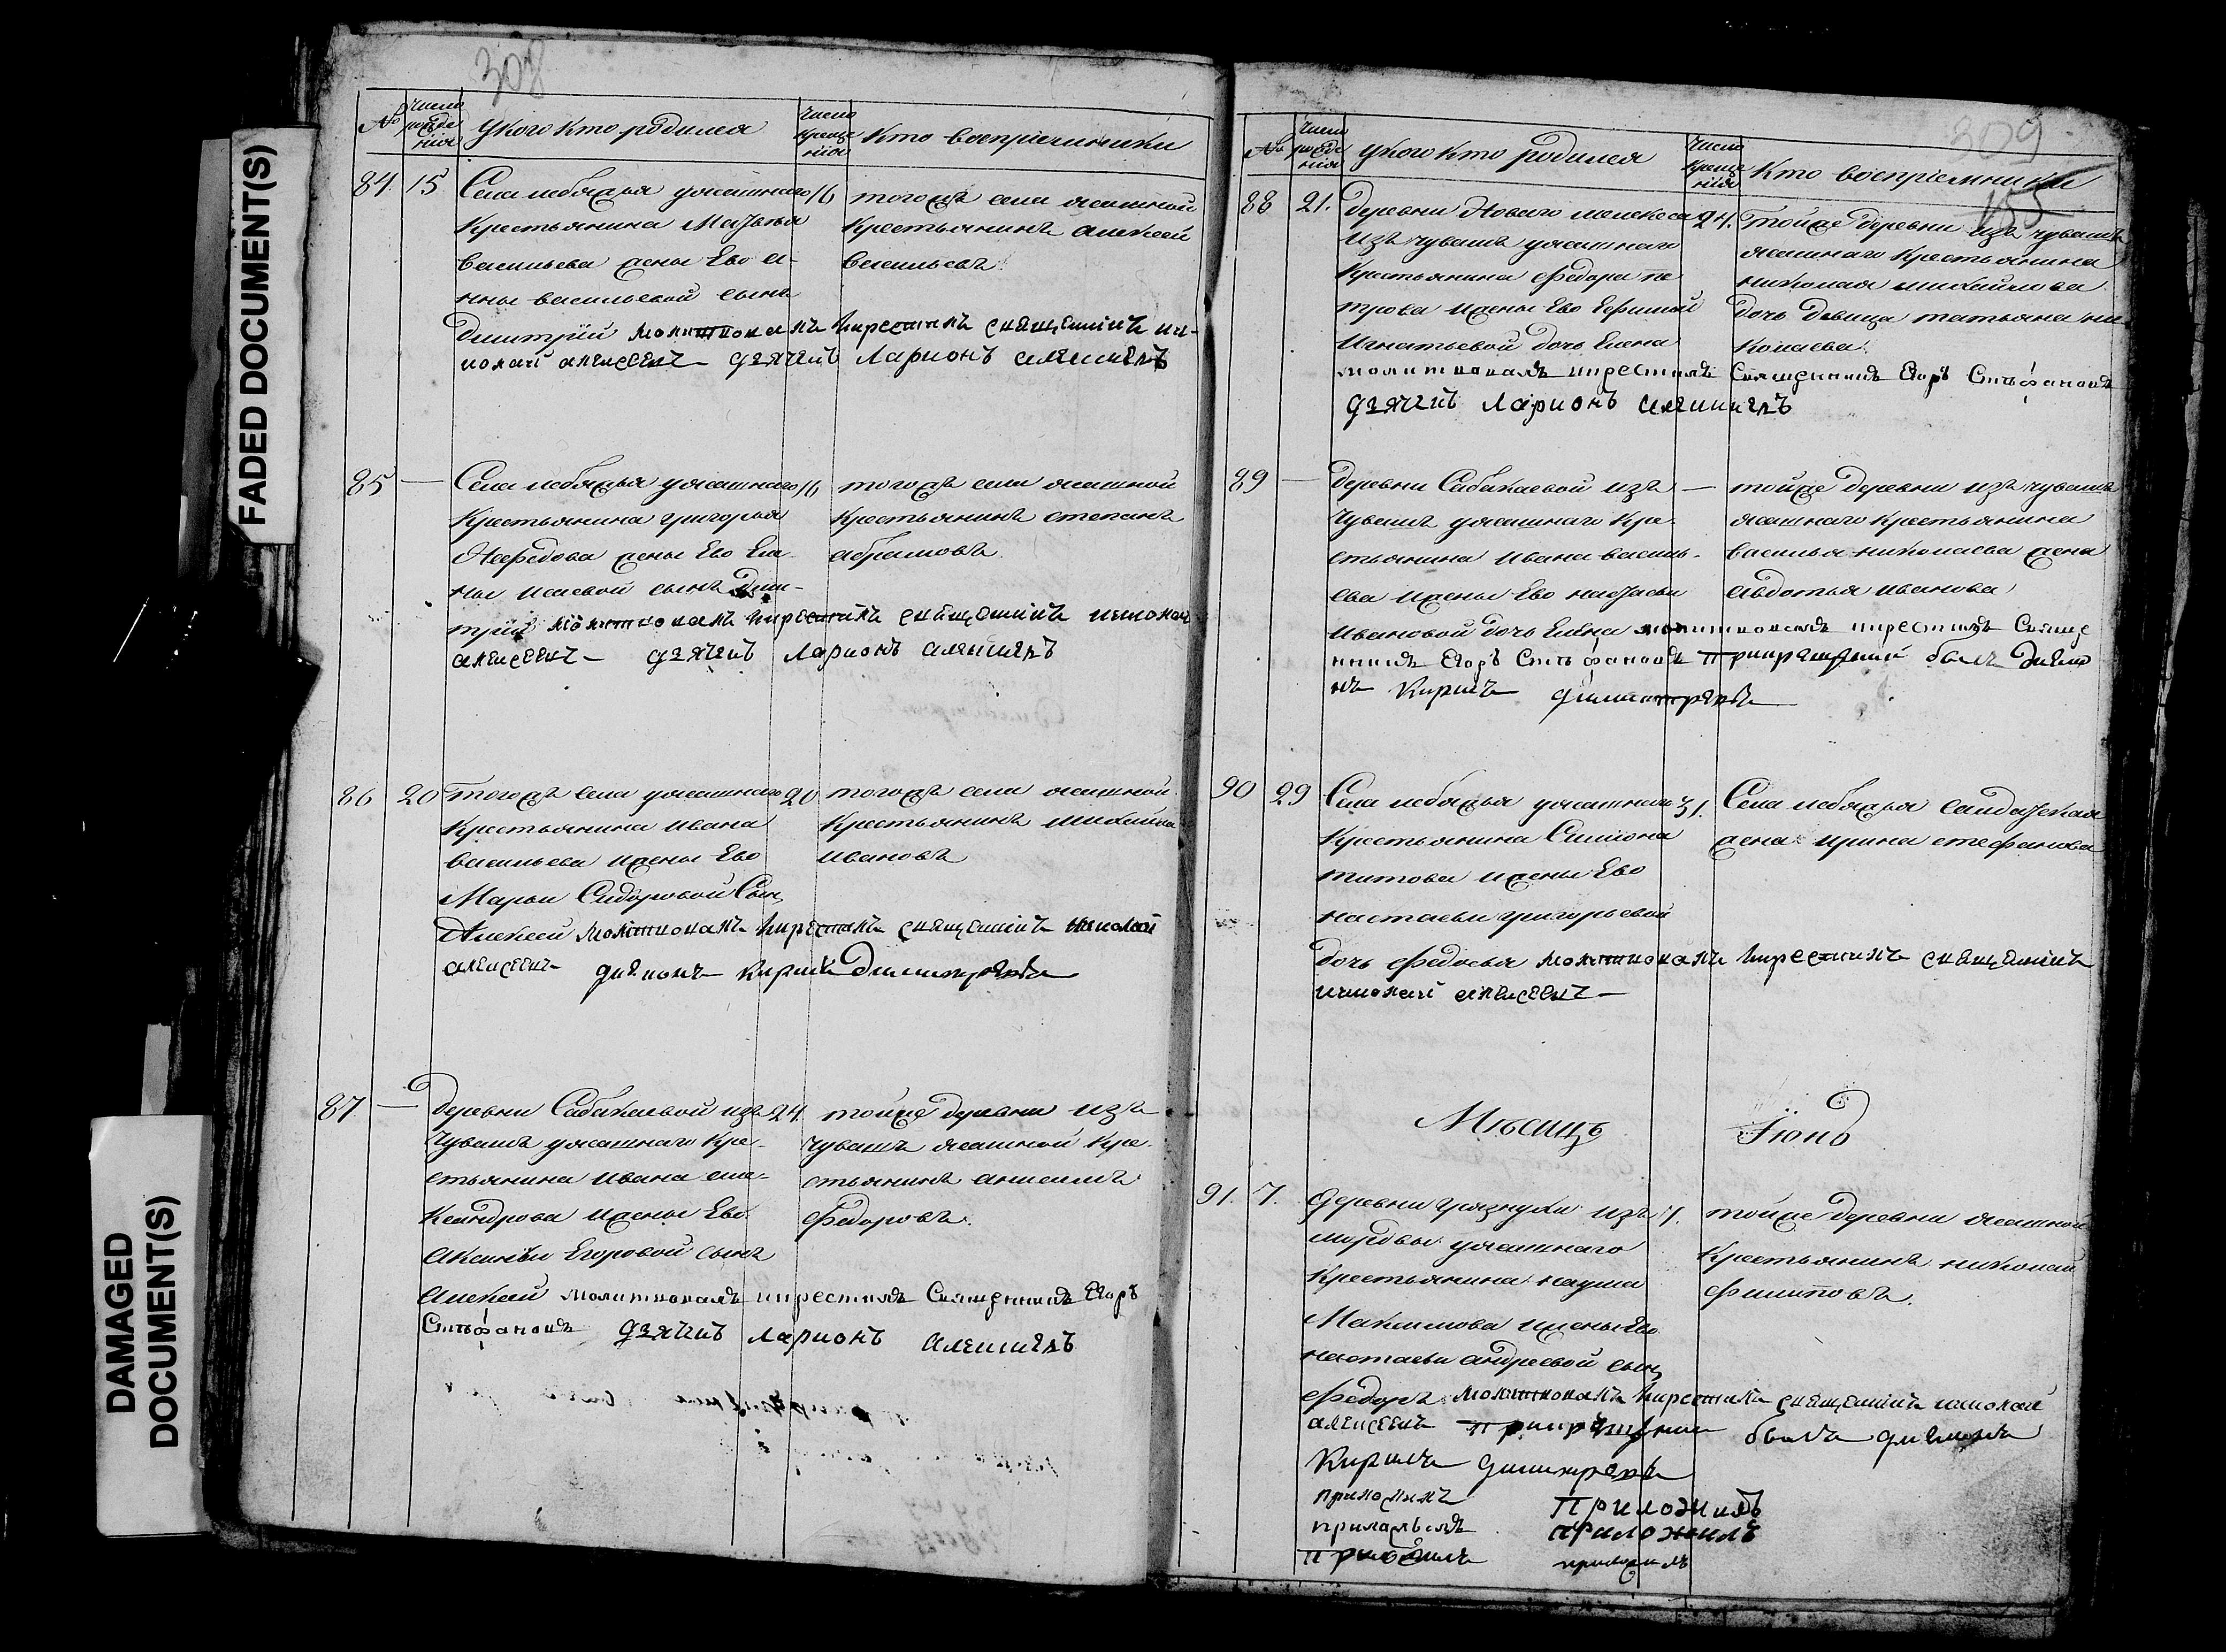 FADED DOCUMENT(S)
DAMAGED
DOCUMENT(S)
308
№
Число рожде нія
У кого кто родился
Число креще нія
Кто восприемники
84. 15
Села лебяжья у ясашнаго
крестьянина
васильева жены Ево а-
нны васильевой сынъ
Дмитрій молитвовалъ икрестилъ священникъ ни-
колай алексеевъ дьячекъ Ларионъ
16
тогожъ села ясашной
крестьянинъ алексей
васильевъ.
85 —
Села лебяжья у ясашнаго
крестьянина григорья
Нефедова жены Ево Еле-
ны исаевой сынъ Дми-
трій молитвовалъ икрестилъ священникъ николай
алексеевъ дьячекъ Ларионъ
16
тогожъ села ясашной
крестьянинъ степанъ
абрамовъ.
86 20
тогожъ села у ясашнаго
крестьянина ивана
васильева ижены Ево
Марьи Сидоровой Сынъ
Алексей молитвовалъ икрестилъ священникъ николай
алексеевъ дияконъ кирилъ Димитревъ
20
тогожъ села ясашной
крестьянинъ михайла
ивановъ
87 —
деревни Сабакаевой изъ
Чувашъ у ясашнаго кре-
стьянина ивана але-
ксандрова ижены Ево
аксиньи Егоровой сынъ
алексей молитвовалъ икрестилъ Священникъ Егоръ
Стефановъ дьячекъ Ларионъ
24.
тойже деревни изъ
чувашъ ясашной кре-
стьянинъ
федоровъ.
309
155
№
Число рожде нія
у кого кто родился
Число креще нія
Кто восприемники
88 21.
деревни Новаго мелекеса
изъ чувашъ у ясашнаго
крестьянина федора пе
трова ижены Ево Ефимьи
игнатьевой дочь Елена
молитвовалъ икрестилъ Священникъ Егоръ Стефановъ
дьячекъ Ларионъ
24.
тойже деревни изъ чувашъ
ясашнаго крестьянина
николая михайлова
дочь девица татьяна ни-
колаева.
89 —
деревни Сабакаевой изъ
Чувашъ у ясашнаго кре-
стьянина ивана василь-
ева ижены Ево настасьи
ивановой дочь Елена молитвовалъ икрестилъ Священ
никъ Егоръ Стефановъ при крещении былъ дияко
нъ кирилъ димитревъ
—
тойже деревни изъ чувашъ
ясашнаго крестьянина
василья николаева жена
авдотья иванова
90 29
Села лебяжья у ясашнаго
крестьянина Симиона
титова ижены Ево
настасьи григорьевой
дочь федосья молитвовалъ икрестилъ священникъ
николай алексеевъ
31.
Села лебяжья салдатская
жена ирина стефанова
Месяцъ Іюнь
91. 7.
деревни грязнухи изъ
мордвы у ясашнаго
крестьянина наума
Максимова ижены Ево
настасьи андреевой сынъ
федоръ молитвовалъ икрестилъ священникъ николай
алексеевъ при крещении былъ дияконъ
Кирилъ димитревъ
7.
тойже деревни ясашной
крестьянинъ николай
филиповъ.
приложилъ
приложилъ
приложилъ